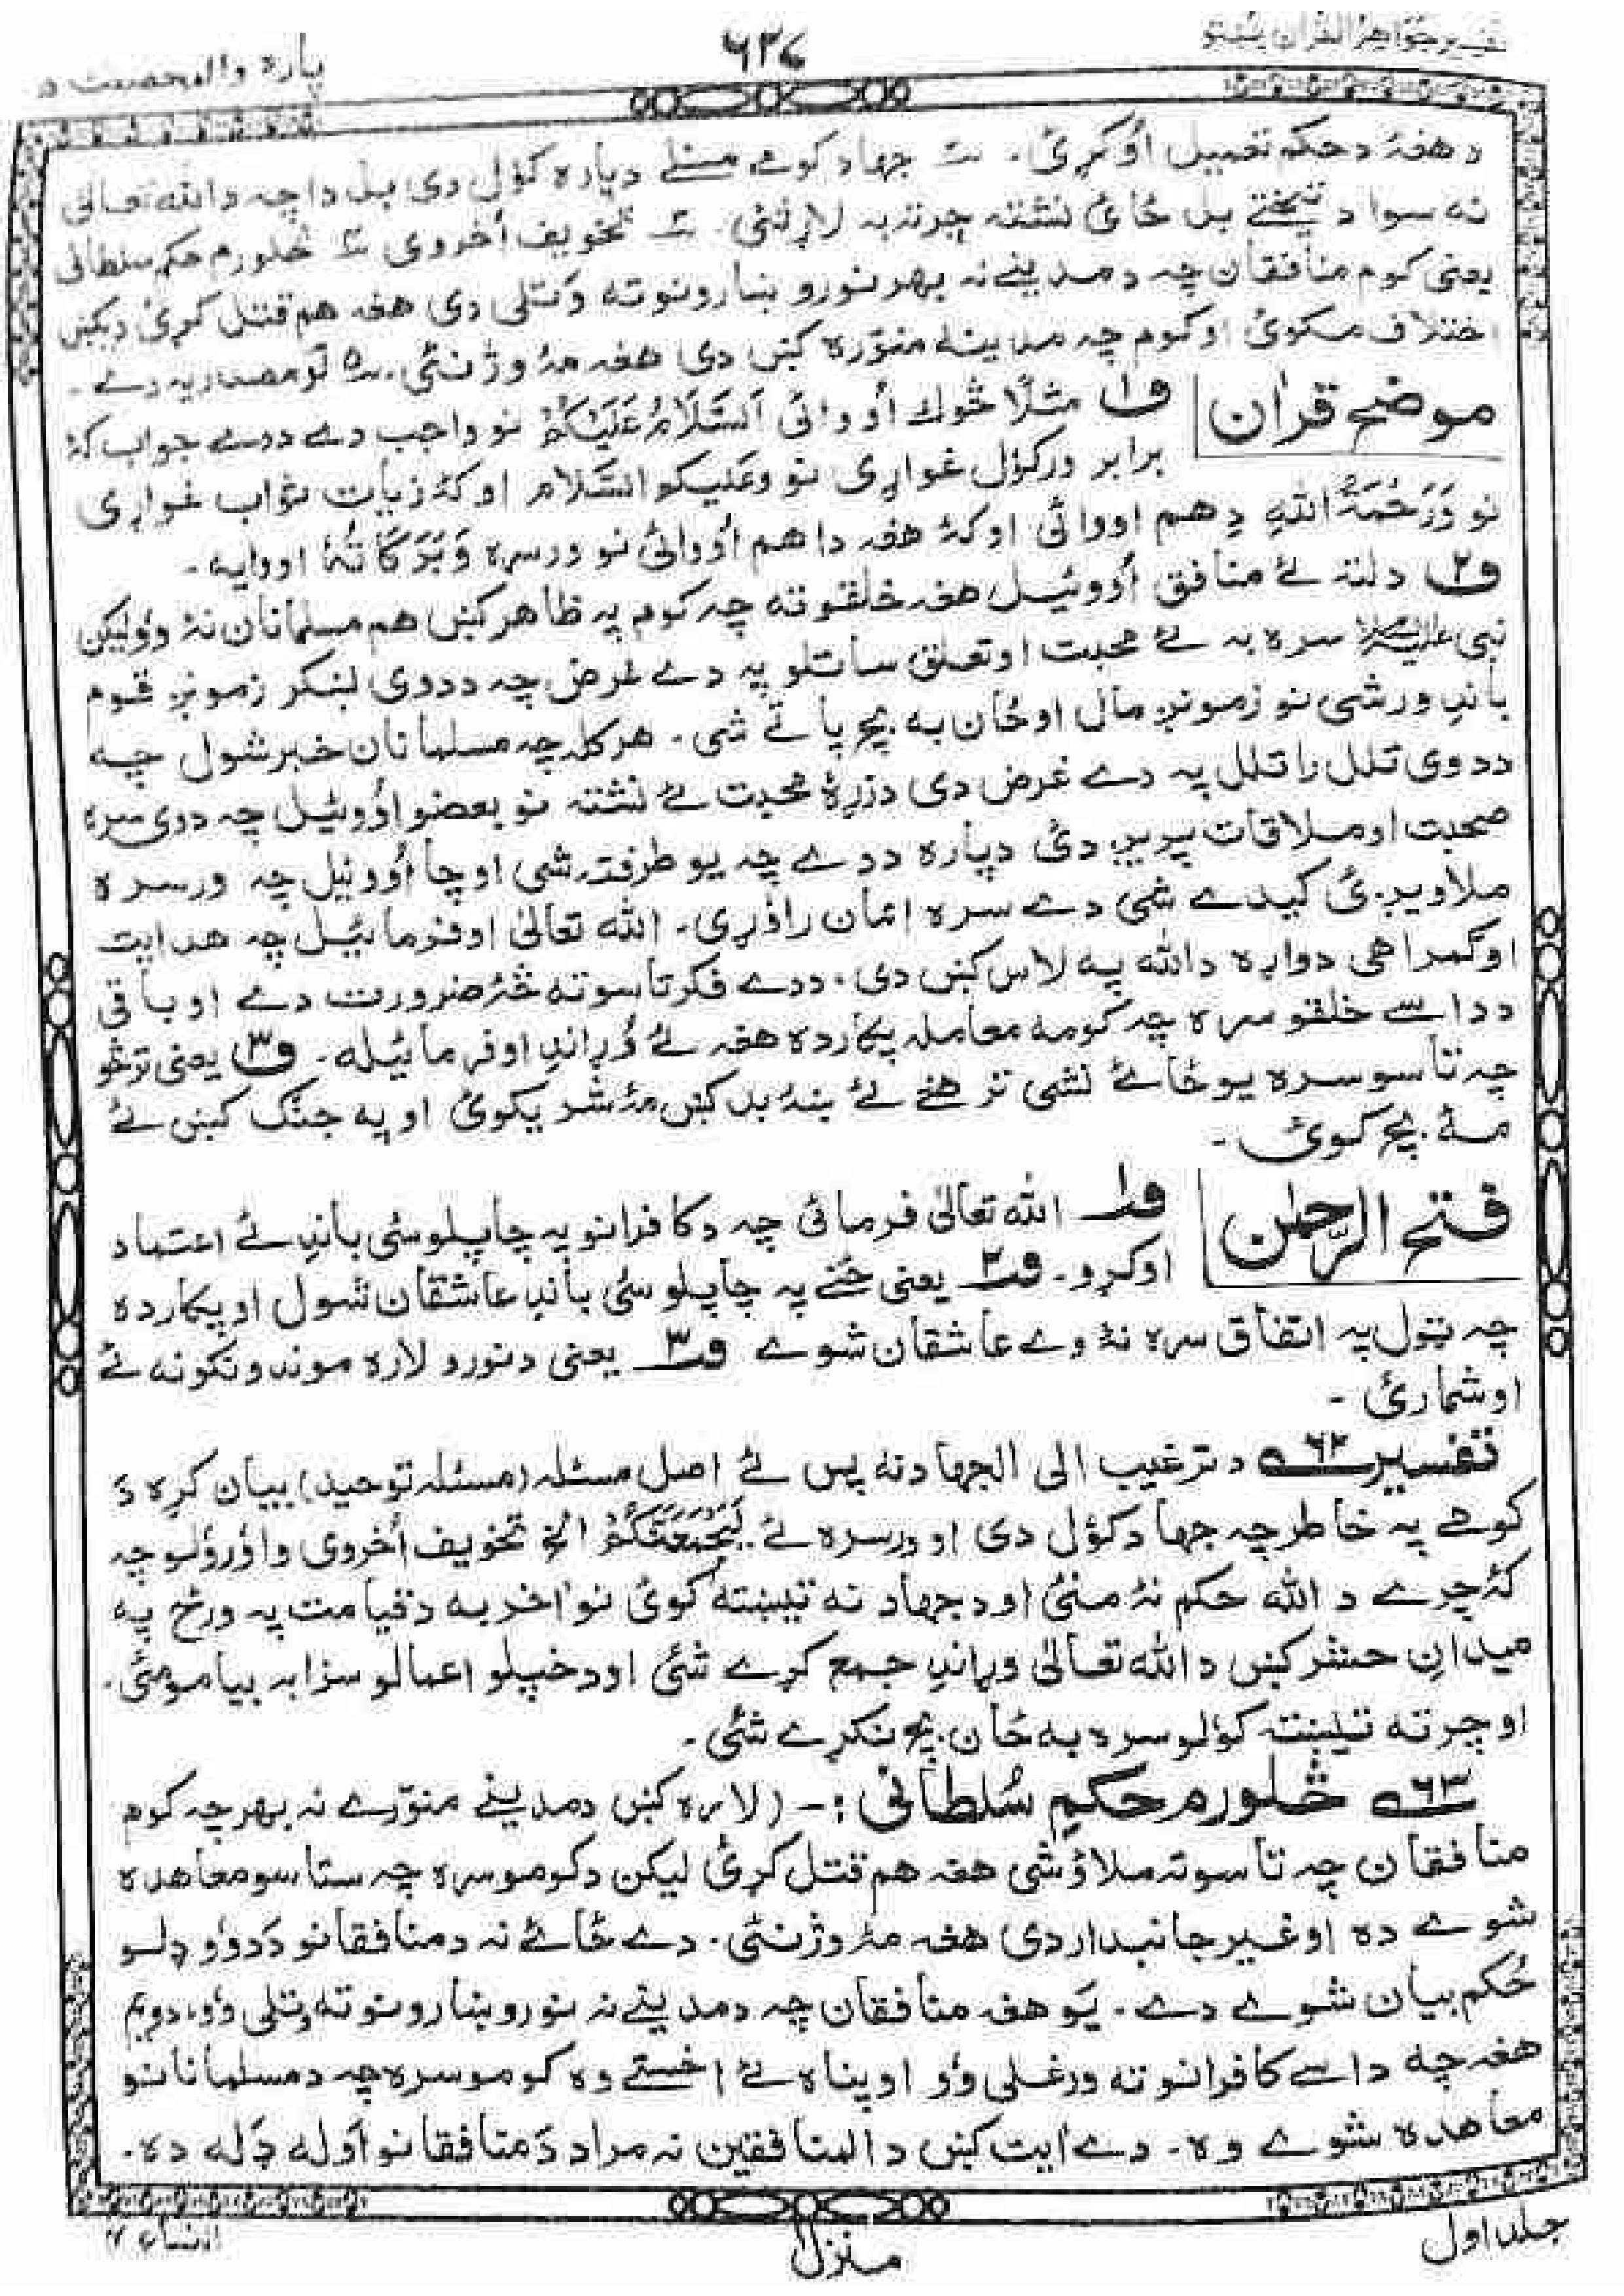 تفسیر جواهر القرآن پښتو
۶۳۷
پاره والمحصنت ۵
د هغهٔ د حکم تعمیل اُوکړئ. جهاد کومے مسئلے دپاره کؤل دی بل داچه دالله تعالیٰ
نه سوا د تېختے بل ځائ نشته چرته به لاړ نشئ. تخویف اُخروی څلورم حکم سلطانی
یعنی کوم منافقان چه د مدینے نه بهر نورو ښارونو ته وتلی دی هغه هم قتل کړئ دیکښ
اختلاف مکوئ اوکوم چه مدینه منوّره کښ دی هغه مهٔ وژنئ. لو مصدریه دے.
موضح قرآن
ف۱ مثلًا څوك اُووائی اَلسَّلَامُ عَلَیْکُمْ نو واجب دے ددے جواب کهٔ
برابر ورکؤل غواړی نو وعلیکم السّلام اوکهٔ زیات ثواب غواړی
نو وَرَحْمَةُ اللهِ دِ هم اووائی اوکهٔ هغه دا هم اُووائی نو ورسره وَبَرَکَاتُهٗ اووایه.
ف۲ دلته ئے منافق اُووئیل هغه خلقو ته چه کوم په ظاهر کښ هم مسلمانان نهٔ وؤ لیکن
نبی علیه السلام سره به ئے محبت اوتعلق ساتلو په دے غرض چه ددوی لښکر زمونږ قوم
باندِ ورشی نو زمونږ مال اوځان به بچ پاتے شی. هرکله چه مسلمانان خبر شول چه
ددوی تلل راتلل په دے غرض دی دزړهٔ محبت ئے نشته نو بعضو اُووئیل چه دوی سره
صحبت اوملاقات پریږدئ دپاره ددے چه یو طرفته شی اوچا اُووئیل چه ورسره
ملاویږئ کیدے شی دے سره ایمان راوړی. الله تعالیٰ اوفرمائیل چه هدایت
اوګمراهی دواړه دالله په لاس کښ دی. ددے فکر تاسو ته څهٔ ضرورت دے اوباقی
دداسے خلقو سره چه کومه معامله پکارده هغه ئے وړاندِ اوفرمائیله. ف۳ یعنی ترڅو
چه تاسو سره یوځائے نشی ترهغے ئے ښهٔ بد کښ مهٔ شریکوئ اوپه جنګ کښ ئے
مهٔ بچ کوئ.
فتح الرحمٰن
ف۱ الله تعالیٰ فرمائی چه دکافرانو په چاپلوسئ باندِ ئے اعتماد
اوکړو. ف۲ یعنی ځنے په چاپلوسئ باندِ عاشقان شول اوپکارده
چه ټول په اتفاق سره نهٔ وے عاشقان شوے ف۳ یعنی دنورو لاره موندونکو نه ئے
اوشمارئ.
تفسیر ۶۲ دترغیب الی الجهاد نه پس ئے اصل مسئله (مسئله توحید) بیان کړه دَ
کومے په خاطر چه جهاد کؤل دی اوورسره ئے لَیَجْمَعَنَّکُمْ الخ تخویف اُخروی واؤرؤلو چه
کهٔ چرے د الله حکم نهٔ منئ اودجهاد نه تیښته کوئ نو اٰخر به دقیامت په ورځ په
میدانِ حشر کښ دالله تعالیٰ وړاندِ جمع کړے شئ اودخپلو اعمالو سزا به بیامومئ.
اوچرته تیښته کؤلو سره به ځان بچ نکړے شئ.
۶۳ څلورم حکمِ سُلطانی :- (لاره کښ دمدینے منوّرے نه بهر چه کوم
منافقان چه تاسو ته ملاؤشی هغه هم قتل کړئ لیکن دکومو سره چه ستاسو معاهده
شوے ده اوغیر جانبدار دی هغه مهٔ وژنئ. دے ځائے نه دمنافقانو دَدوؤ ډلو
حُکم بیان شوے دے. یَو هغه منافقان چه دمدینے نه نورو ښارونو ته وتلی وؤ، دویم
هغه چه داسے کافرانو ته ورغلی وؤ اوپناه ئے اخستے وه کومو سره چه دمسلمانانو
معاهده شوے وه. دے اٰیت کښ دالمنافقین نه مراد دَمنافقانو اَوله ډله ده.
النساء ۴
منزل
جلد اول